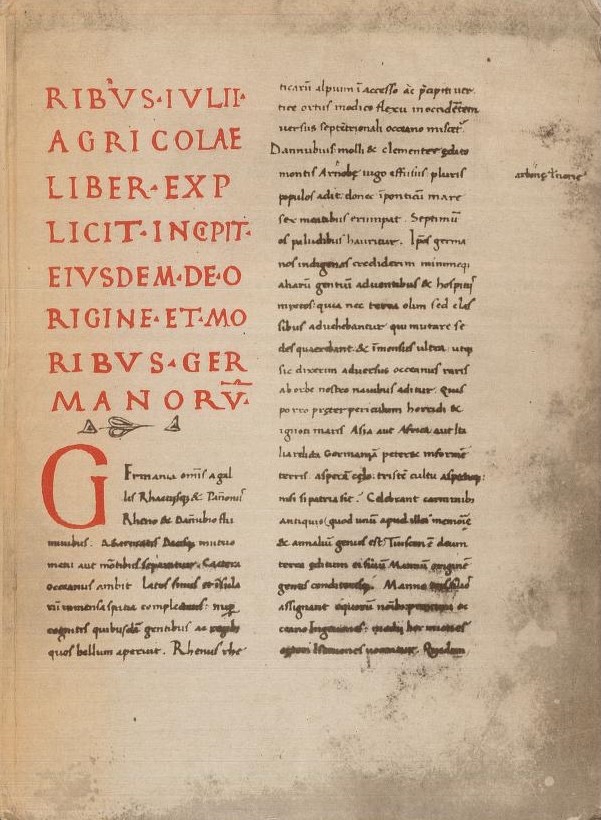 RIBVS·IVLII·
AGRICOLAE
LIBER·EXP
LICIT·INCIPIT·
EIVSDEM·DE·O
RIGINE·ET·MO
RIBVS·GER
MANORV̄·
Germania omīs a gal
lis Rhaetisq; & Pānoniis
Rheno & Danubio flu
minibus: a Sarmatis Dacisq; mutuo
metu aut mōtibus separatur. Caetera
oceanus ambit Latos sinus et īsula
rū immensa spatia complectens: nup
cognitis quibusdā gentibus ac regib;
quos bellum aperuit. Rhenus rhe
ticarū alpium ī accesso ac p̄cipiti ver
tice ortus modico flexu in occidētem
versus septētrionali occeano miscet.
Dannubius molli & clementer edito
montis Arnobę iugo effusus pluris
populos adit: donec ī ponticū mare
sex meatibus erumpat. Septimū
os paludibus hauritur. Ip̄os germa
nos indigenas crediderim minimeq;
aliarū gentiū adventibus & hospitiis
mixtos: quia nec terra olim sed clas
sibus advehebantur qui mutare se
des quaerebant. & īmensus ultra. utq;
sic dixerim adversus occeanus raris
ab orbe nostro navibus aditur. Quis
porro pręter periculum horridi &
ignoti maris Asia aut Africa aut Ita
lia relicta Germaniā peteret informē
terris. asperā cęlo: tristē cultu aspectuq;:
nisi si patria sit? Celebrant carminibus
antiquis (quod unū apud illos memorię
& annaliū genus est) Tuistonē deum
terra editum et filiū Mannū originē
gentis conditorisq;. Manno tris filios
assignant e quorū nōib; proximi o
ceano Ingaevones: medii hermiones
ceteri Istaevones vocantur. Quidam
arbonę t̄ norię